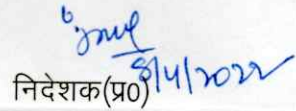 8/4/2022
निदेशक(प्र0)